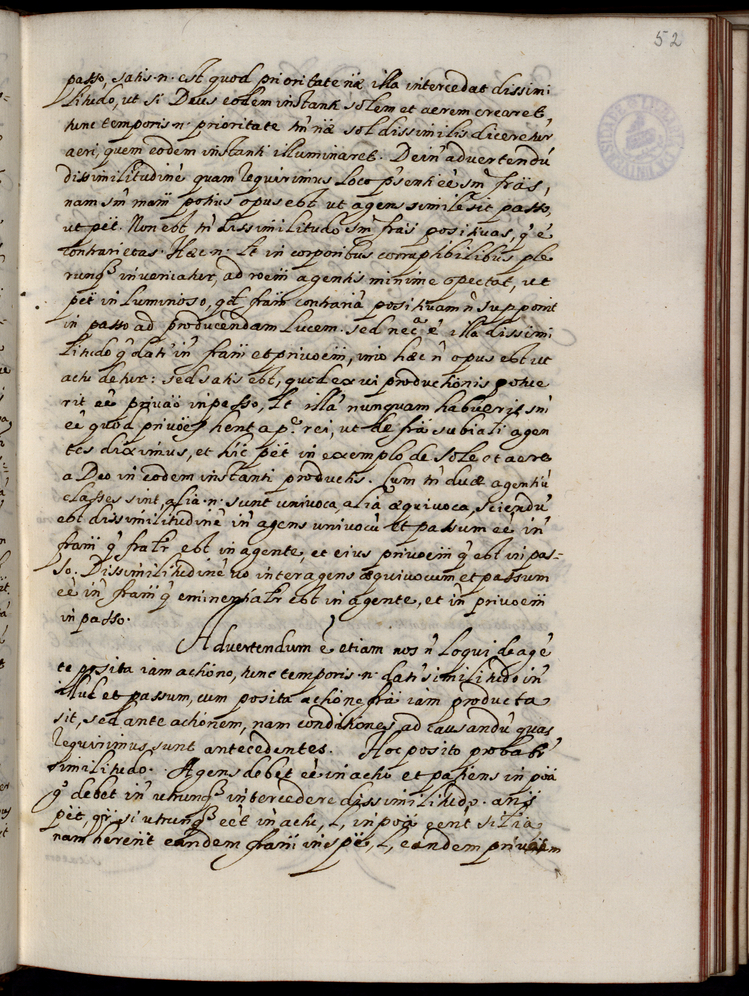 52
passo, satis .n. est quod prioritate nae̅ illa intercedat dissimi
litudo, ut si Deus eodem instanti solem et aerem crearet,
tunc temporis .n. prioritate tn̅ nae̅ sol dissimilis diceretur
aeri, quem eodem instanti illuminaret. Dein̅ advertendu̅
dissimilitudine̅ quam requirimus loco p̅senti ee̅ sm̅ fras̅,
nam sm̅ mam̅ potius opus est ut agens simile sit passo,
ut pet̅. Non est tn̅ dissimilitudo sm̅ fras̅ positivas, q̅ e̅
contrarietas. Haec .n. lt̅ in corporibus corruptibilibus ple
rumq̅ inveniatur, ad roem̅ agentis minime spectat, ut
pet̅ in luminoso, qd̅ fram̅ contraria̅ positivam n̅ supponit
in passo ad producendam lucem. Sed nec e̅ illa dissimi
litudo q̅ datr̅ in̅ fram̅ et privoem̅, imo haec n̅ opus est ut
actu detur: sed satis est, quod ex vi productionis potue
rit ee̅ privao̅ in passo, lt̅ illa̅ nunquam habuerit sm̅
ee̅ quod privoes̅ hent a p.e rei, ut de fra̅ subiali̅ agen
tes diximus, et hic pet̅ in exemplo de Sole et aere
a Deo in eodem instanti productis. Cum tn̅ duae agentiu̅
classes sint, alia .n. sunt univoca, alia aequivoca, sciendu̅
est dissimilitudine̅ in̅ agens univocu̅ et passum ee̅ in̅
fram̅ q̅ fralr̅ est in agente, et eius privoem̅ q̅ est in pas-
so. Dissimilitudine̅ vo inter agens aequivocum et passum
ee̅ in̅ fram̅ q̅ eminentialr̅ est in agente, et in̅ privoem̅
in passo.
Advertendum e̅ etiam nos n̅ loqui de age̅
te posita iam actione, tunc temporis .n. datr̅ similitudo in̅
illud et passum, cum posita actione fra̅ iam producta
sit, sed ante actionem, nam conditiones ad causandu̅ quas
requirimus sunt antecedentes. Hoc posito probatr̅
similitudo. Agens debet ee̅ in actu et patiens in poa̅
g̅ debet in̅ utrumq̅ intercedere dissimilitudo. an̅s
pet̅, qr̅ si utrumq̅ eet̅ in actu, l, in poa̅ eent̅ silia̅,
nam herent̅ eandem fram̅ in spe̅, l, eandem privoem̅